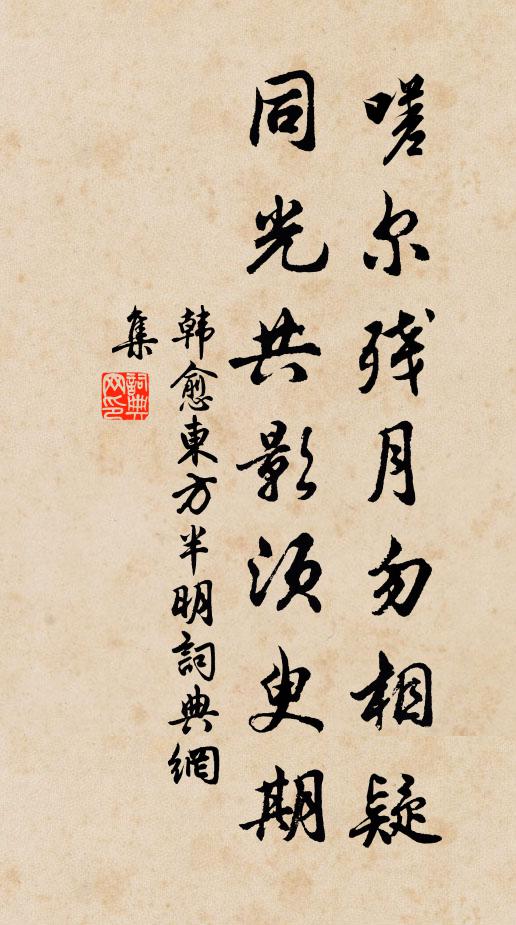 嗟尔残月勿相疑
同光共影须臾期
韩愈東方半明詞典網
集
詞典
网印